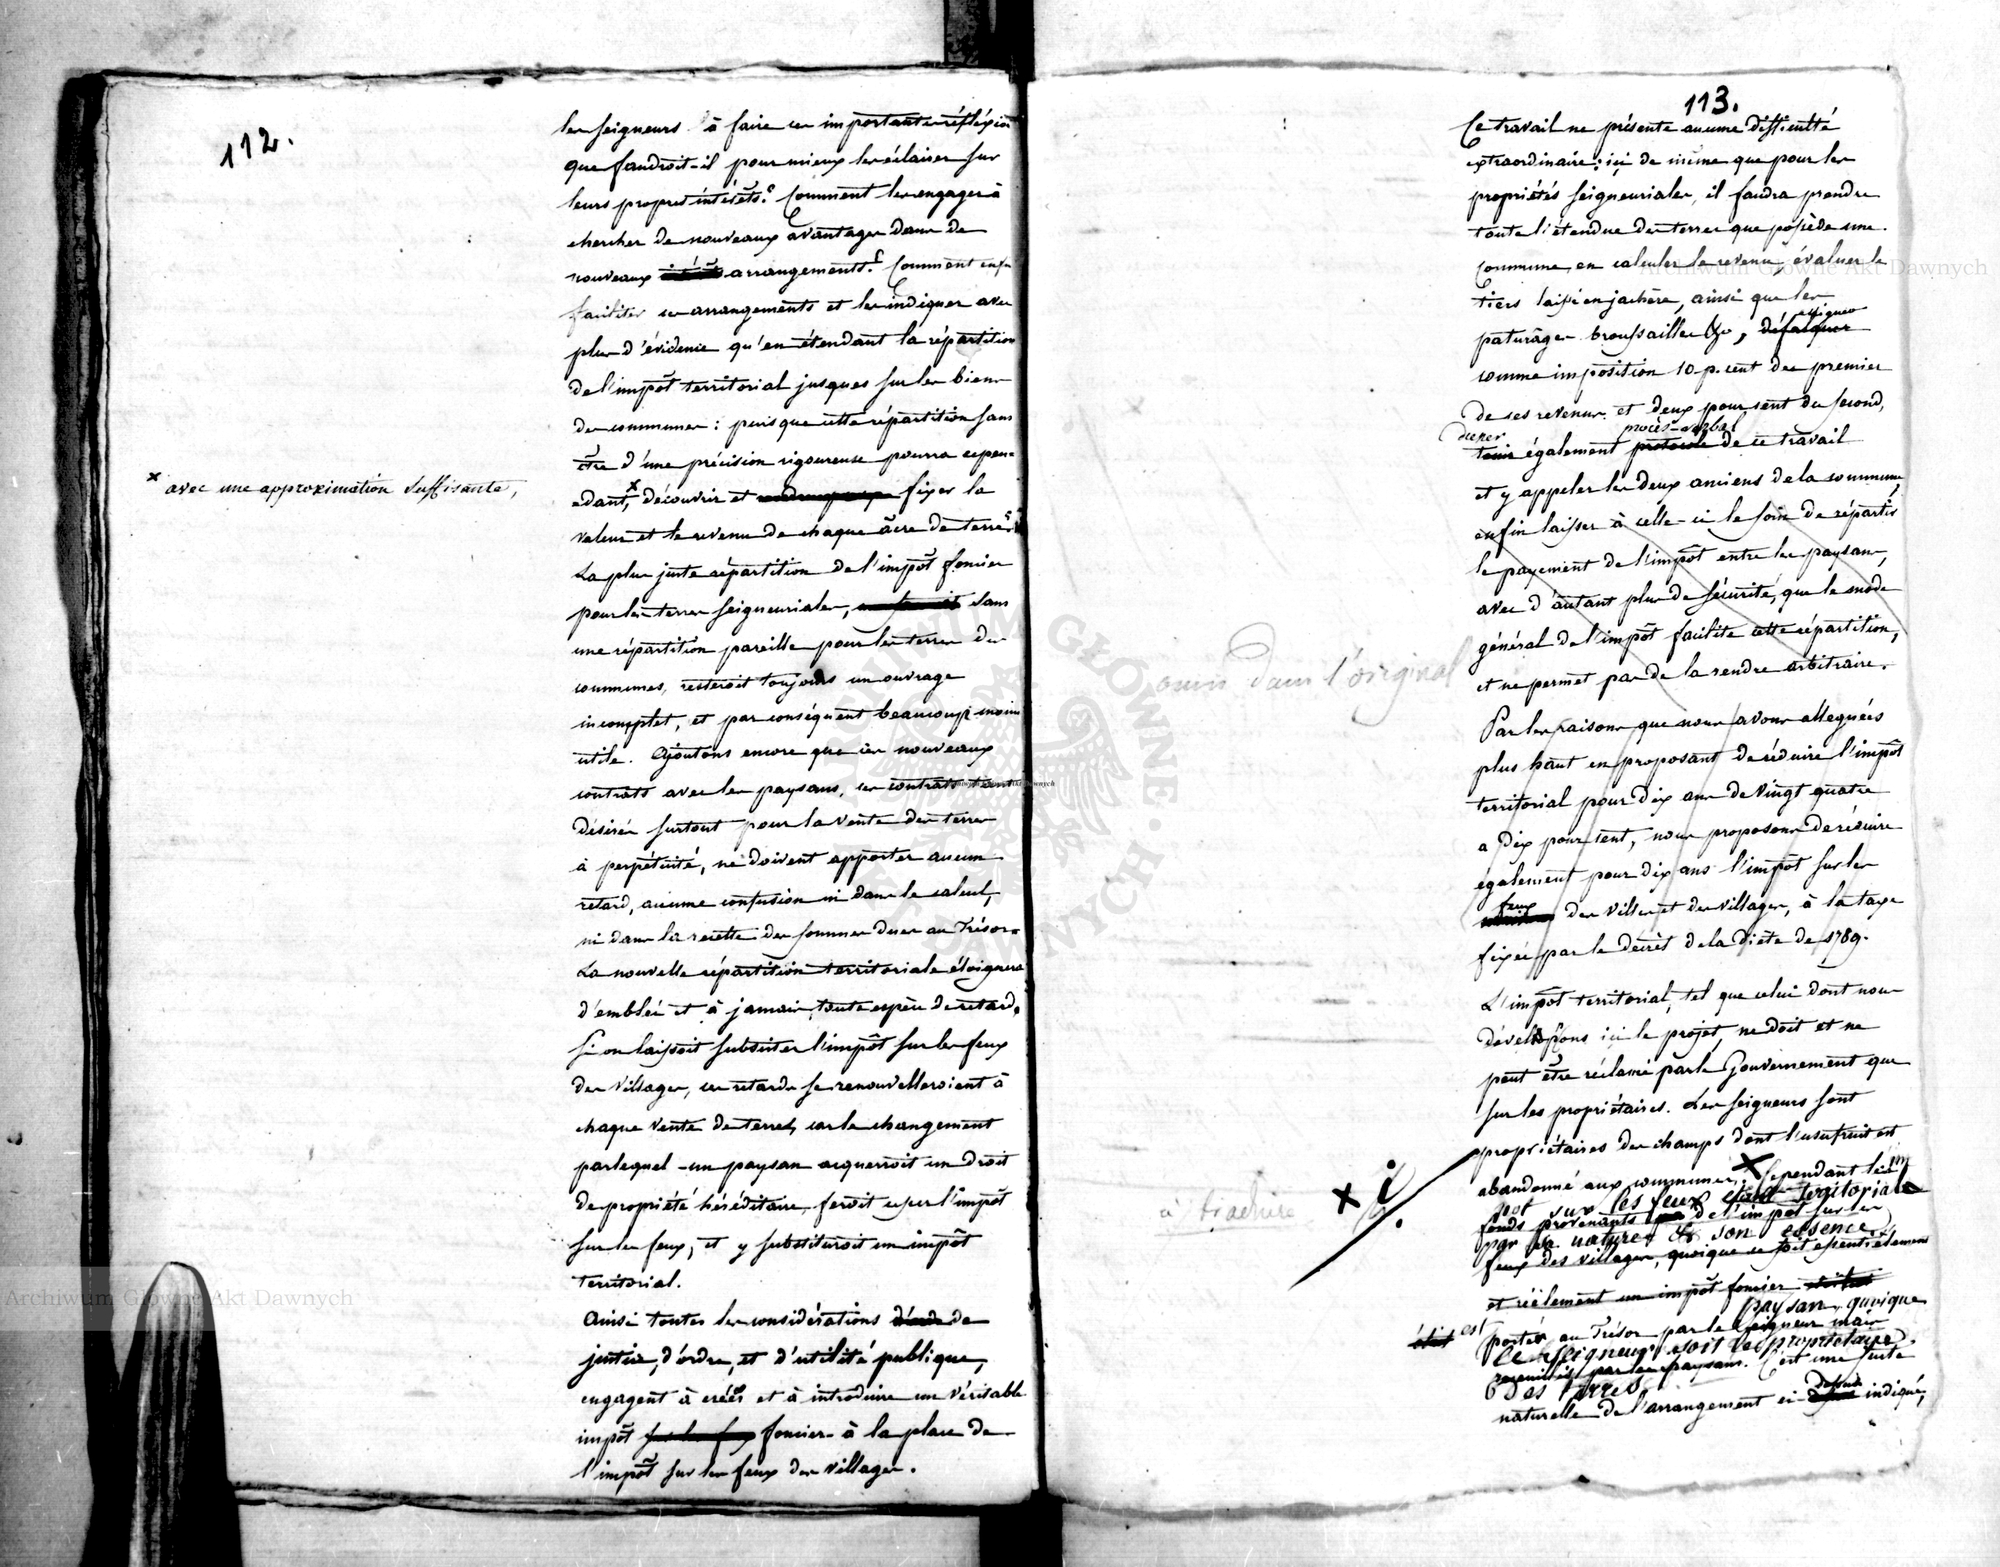 112.
les seigneurs à faire ces importantes réfléxions
que faudroit-il pour mieux les éclairer sur
leurs propres intérêts? Comment les engager à
chercher de nouveaux avantages dans de
nouveaux arrangements? Comment enfin
faciliter ces arrangements et les indiquer avec
plus d'évidence qu'en étendant la répartition
de l'impôt territorial jusques sur les biens
des communes: puisque cette répartition sans
être d'une précision rigoureuse pourra cepen=
x avec une approximation suffisante,
edant,x découvrir et fixer la
valeur et le revenu de chaque âcre de terre?
La plus juste répartition de l'impôt foncier
pour les terres seigneuriales, sans
une répartition pareille pour les terres des
communes, resteroit toujours un ouvrage
incomplet, et par conséquent beaucoup moins
utile. Ajoutons encore que ces nouveaux
contrats avec les paysans, ces contrats tant
désirés surtout pour la vente des terres
à perpétuité, ne doivent apporter aucun
retard, aucune confusion ni dans le calcul,
ni dans la recette des sommes dues au Trésor.
La nouvelle répartition territoriale éloignera
d'emblée et à jamais toute espèce de retard.
Si on laissoit subsister l'impôt sur les feux
des villages, ces retards se renouvelleroient à
chaque vente de terres, car le changement
par lequel un paysan acquerroit un droit
de propriété héréditaire, feroit cesser l'impôt
sur les feux, et y substitueroit un impôt
territorial.
Ainsi toutes les considérations de
justice, d'ordre, et d'utilité publique,
engagent à créer et à introduire un véritable
impôt sur les feux foncier à la place de
l'impôt sur les feux des villages.
113.
Ce travail ne présente aucune difficulté
extraordinaire: ici de même que pour les
propriétés seigneuriales, il faudra prendre
toute l'étendue des terres que possède une
Commune en calculer le revenu, évaluer le
tiers laissé en jachère, ainsi que les
assigner
paturages broussailles &c, défalquer
comme imposition 10 p. cent du premier
de ces revenus et deux pour cent du second,
dresser procès-verbal
tenir également protocole de ce travail
et y appeler les deux anciens de la commune,
enfin laisser à celle-ci le soin de répartir
le payement de l'impôt entre les paysans,
avec d'autant plus de sécurité, que le mode
général de l'impôt facilite cette répartition,
et ne permet pas de la rendre arbitraire.
omis dans l'original
Par les raisons que nous avons alleguées
plus haut en proposant de réduire l'impôt
territorial pour dix ans de vingt quatre
a dix pour cent, nous proposons de réduire
également pour dix ans l'impôt sur les
feux
des villes et des villages, à la taxe
fixée par le décret de la diète de 1789.
L'impôt territorial, tel que celui dont nous
développons ici le projet, ne doit et ne
peut être réclamé par le Gouvernement que
sur les propriétaires. Les seigneurs sont
propriétaires des champs dont l'usufruit est
abandonné aux communes; X Cependant l'im
X
pot sur les feux territorial
fonds provenants de l'impôt sur les
par sa nature & son essence
feux des villages, quoique ce soit essentiellement
et réelement un impôt foncier
paysan, quoique
était est portés au Trésor par le seigneur mais
le seigneur soit le propriétaire
recueillis par les paysans. C'est une suite
des terres
dessus
naturelle de l'arrangement ci- indiqué,